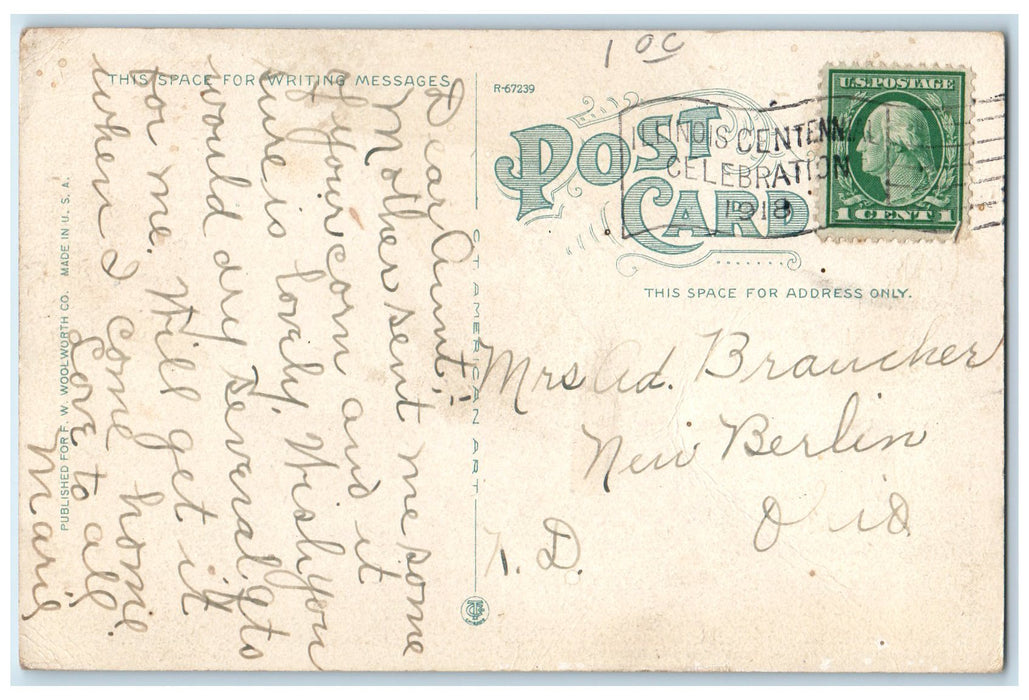 1 oc
THIS SPACE FOR WRITING MESSAGES
R-67239
POST
CARD
ILLINOIS CENTENNIAL
CELEBRATION
1918
U.S. POSTAGE
1 CENT 1
THIS SPACE FOR ADDRESS ONLY.
Dear Aunt:
Mother sent me some
of your corn and it
sure is lovely. Wish you
would dry several qts
for me. Will get it
when I come home.
Love to all
Marie
Mrs Ad. Braucher
New Berlin
R. D.
C. T. AMERICAN ART
PUBLISHED FOR F. W. WOOLWORTH CO. MADE IN U. S. A.